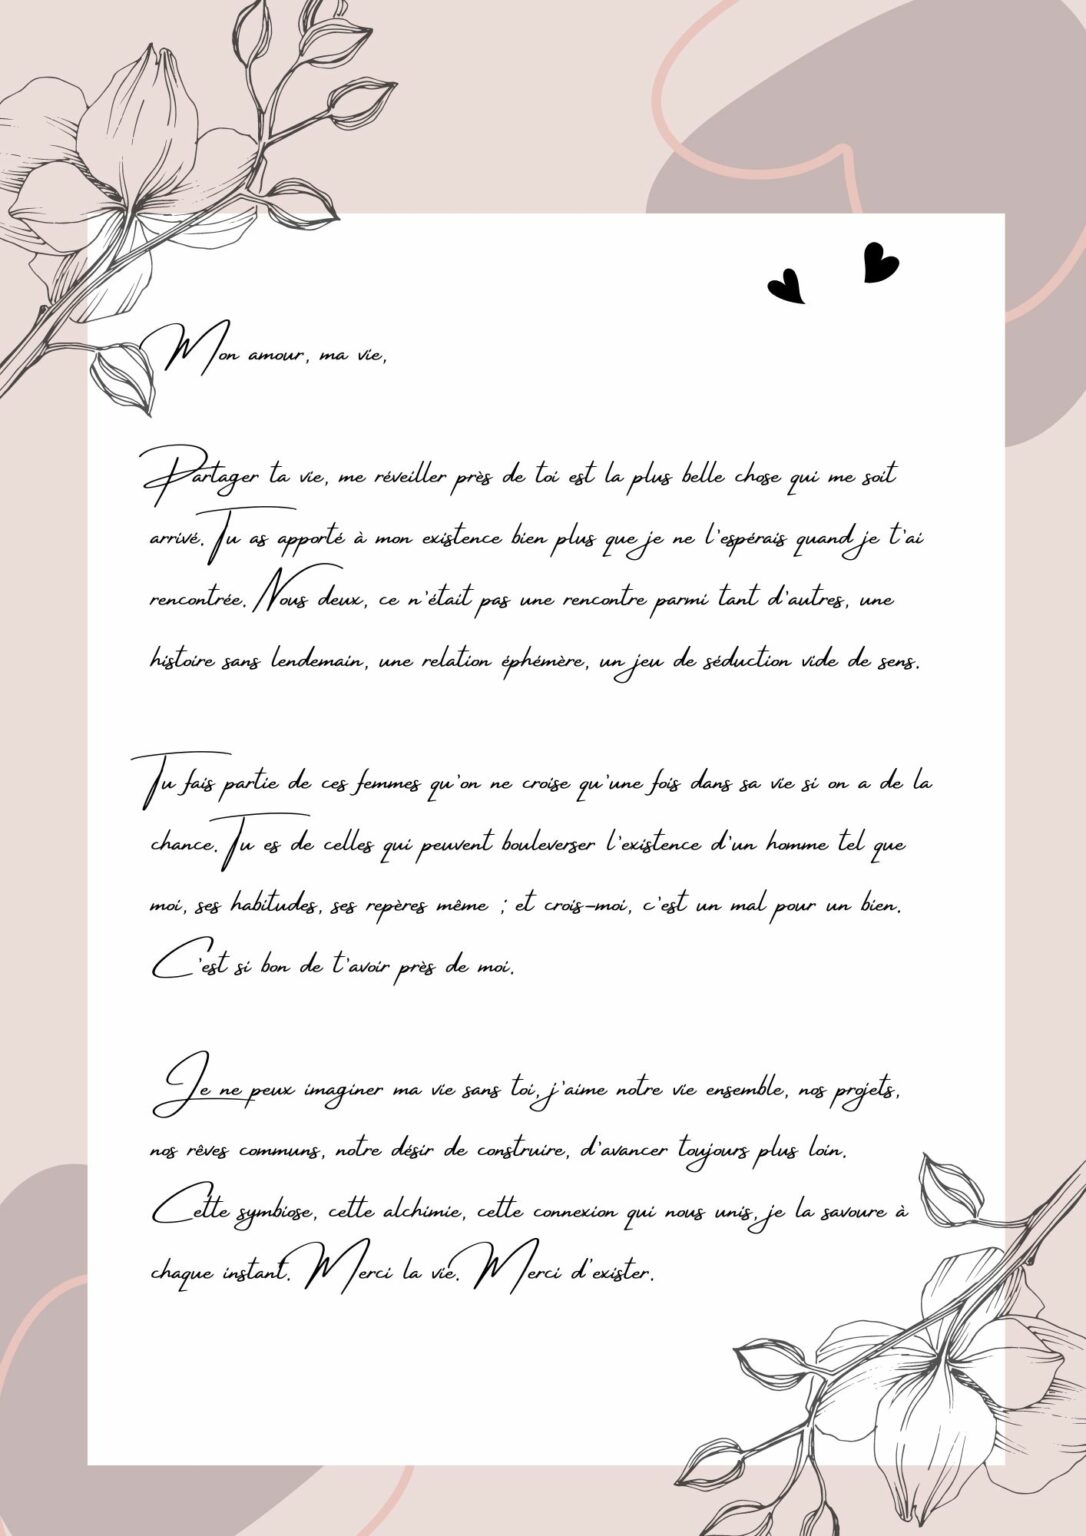 Mon amour, ma vie,
Partager ta vie, me réveiller près de toi est la plus belle chose qui me soit
arrivé. Tu as apporté à mon existence bien plus que je ne l'espérais quand je t'ai
rencontrée. Nous deux, ce n'était pas une rencontre parmi tant d'autres, une
histoire sans lendemain, une relation éphémère, un jeu de séduction vide de sens.
Tu fais partie de ces femmes qu'on ne croise qu'une fois dans sa vie si on a de la
chance. Tu es de celles qui peuvent bouleverser l'existence d'un homme tel que
moi, ses habitudes, ses repères même ; et crois-moi, c'est un mal pour un bien.
C'est si bon de t'avoir près de moi.
Je ne peux imaginer ma vie sans toi, j'aime notre vie ensemble, nos projets,
nos rêves communs, notre désir de construire, d'avancer toujours plus loin.
Cette symbiose, cette alchimie, cette connexion qui nous unis, je la savoure à
chaque instant. Merci la vie. Merci d'exister.